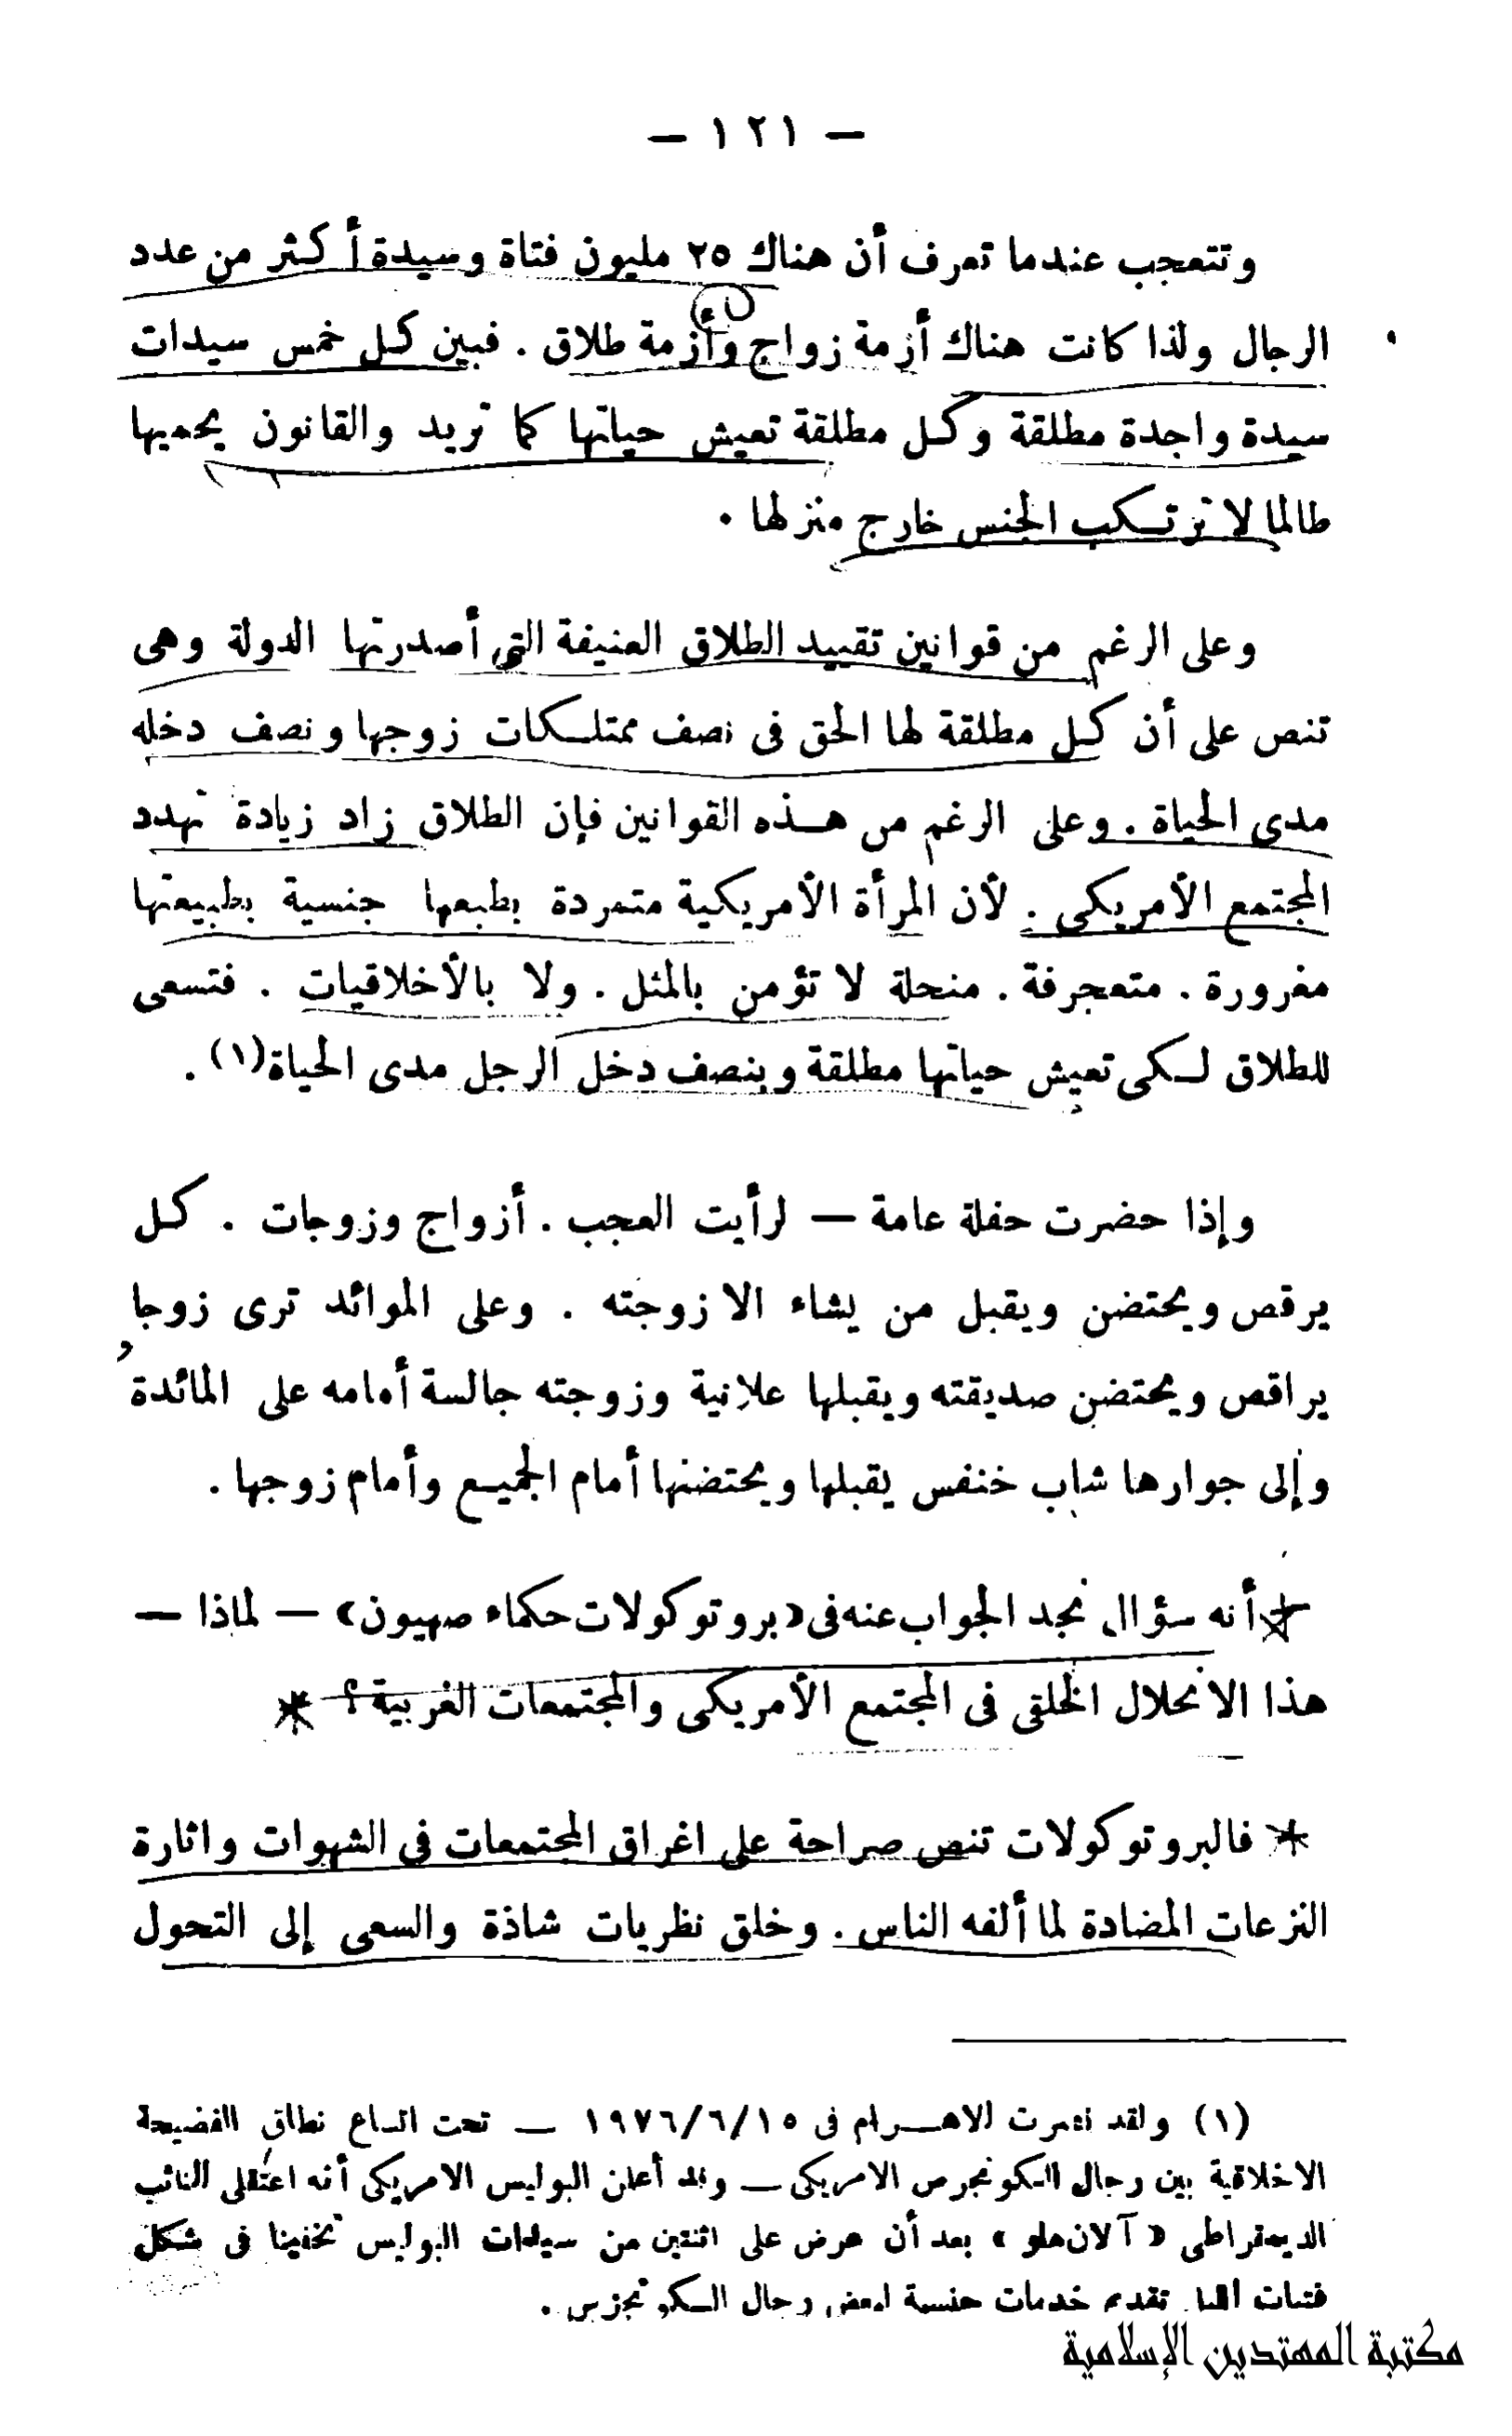 — ١٢١ —
وتتعجب عندما تعرف أن هناك ٢٥ مليون فتاة وسيدة أكثر من عدد
الرجال ولذا كانت هناك أزمة زواج وأزمة طلاق . فبين كل خمس سيدات
سيدة واحدة مطلقة وكل مطلقة تعيش حياتها كما تريد والقانون يحميها
طالما لا ترتكب الجنس خارج منزلها .
وعلى الرغم من قوانين تقييد الطلاق العنيفة التي أصدرتها الدولة وهى
تنص على أن كل مطلقة لها الحق فى نصف ممتلكات زوجها ونصف دخله
مدى الحياة . وعلى الرغم من هذه القوانين فإن الطلاق زاد زيادة تهدد
المجتمع الأمريكى . لأن المرأة الأمريكية متمردة بطبعها جنسية بطبيعتها
مغرورة . متعجرفة . منحلة لا تؤمن بالمثل . ولا بالأخلاقيات . فتسعى
للطلاق لكى تعيش حياتها مطلقة وبنصف دخل الرجل مدى الحياة(١) .
وإذا حضرت حفلة عامة — لرأيت العجب . أزواج وزوجات . كل
يرقص ويحتضن ويقبل من يشاء الا زوجته . وعلى الموائد ترى زوجا
يراقص ويحتضن صديقته ويقبلها علانية وزوجته جالسة أمامه على المائدة
وإلى جوارها شاب خنفس يقبلها ويحتضنها أمام الجميع وأمام زوجها .
أنه سؤال نجد الجواب عنه فى «بروتوكولات حكماء صهيون» — لماذا —
هذا الانحلال الخلقى فى المجتمع الأمريكى والمجتمعات الغربية ؟ *
* فالبروتوكولات تنص صراحة على اغراق المجتمعات فى الشهوات واثارة
النزعات المضادة لما ألفه الناس . وخلق نظريات شاذة والسعى إلى التحول
(١) ولقد نشرت الاهرام فى ١٩٧٦/٦/١٥ — تحت اتساع نطاق الفضيحة
الاخلاقية بين رجال الكونجرس الامريكى — وقد أعلن البوليس الامريكى أنه اعتقل النائب
الديمقراطى « آلان هلو » بعد أن عرض على اثنتين من سيدات البوليس تخفينا فى شكل
فتيات تقدم خدمات جنسية لبعض رجال الكونجرس .
مكتبة المهتدين الإسلامية